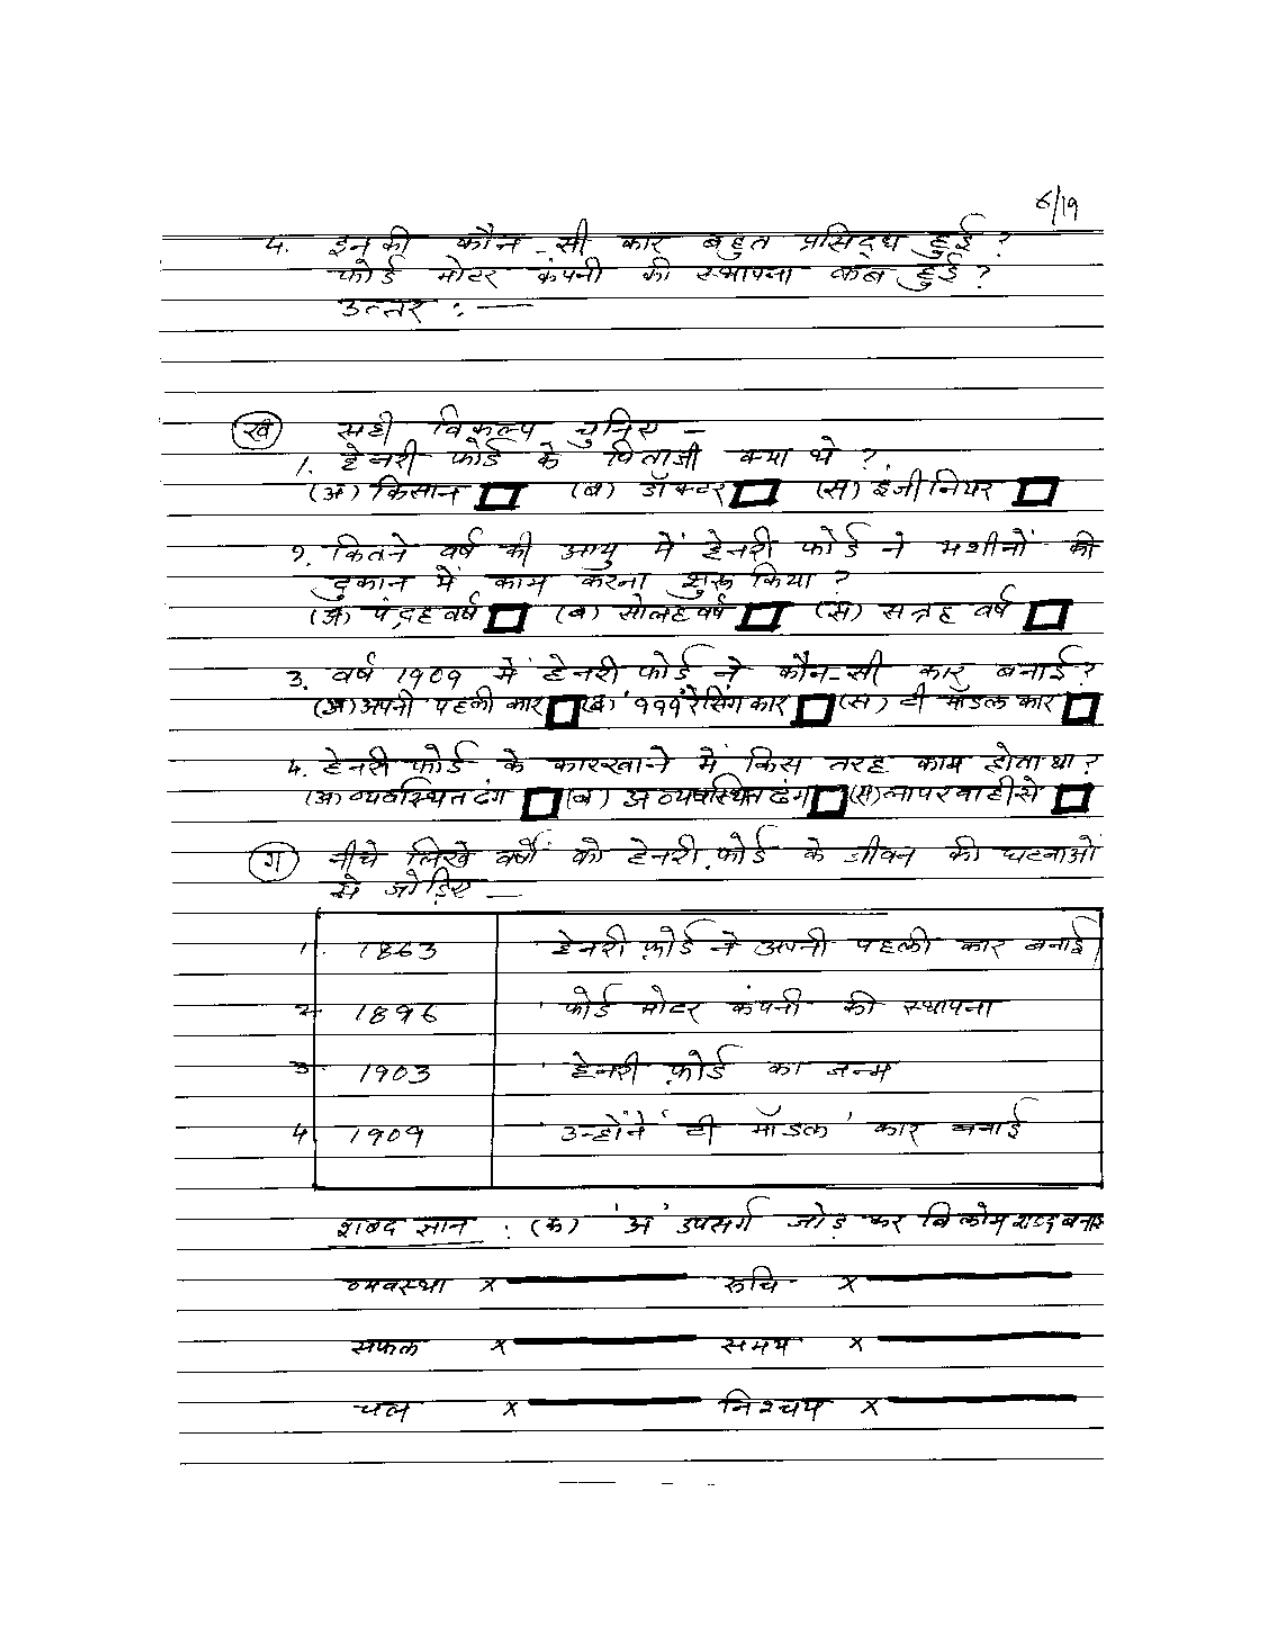 6/19
4. इनकी कौन-सी कार बहुत प्रसिद्ध हुई ?
फोर्ड मोटर कंपनी की स्थापना कब हुई ?
उत्तर :—
(ख) सही विकल्प चुनिए –
1. हेनरी फोर्ड के पिताजी क्या थे ?
(अ) किसान (ब) डॉक्टर (स) इंजीनियर
२. कितने वर्ष की आयु में हेनरी फोर्ड ने मशीनों की
दुकान में काम करना शुरू किया ?
(अ) पंद्रह वर्ष (ब) सोलह वर्ष (स) सत्रह वर्ष
3. वर्ष 1909 में हेनरी फोर्ड ने कौन-सी कार बनाई ?
(अ) अपनी पहली कार (ब) '999' रेसिंग कार (स) टी मॉडल कार
4. हेनरी फोर्ड के कारखाने में किस तरह काम होता था ?
(अ) व्यवस्थित ढंग (ब) अव्यवस्थित ढंग (स) लापरवाही से
(ग) नीचे लिखे वर्षों को हेनरी फ़ोर्ड के जीवन की घटनाओं
से जोड़िए —
1. 1863 हेनरी फ़ोर्ड ने अपनी पहली कार बनाई
2 1896 फोर्ड मोटर कंपनी की स्थापना
3 1903 हेनरी फ़ोर्ड का जन्म
4 1909 उन्होंने 'टी मॉडल' कार बनाई
शब्द ज्ञान : (क) 'अ' उपसर्ग जोड़ कर विलोम शब्द बनाइ
व्यवस्था x रुचि x
सफल x समय x
चल x निश्चय x